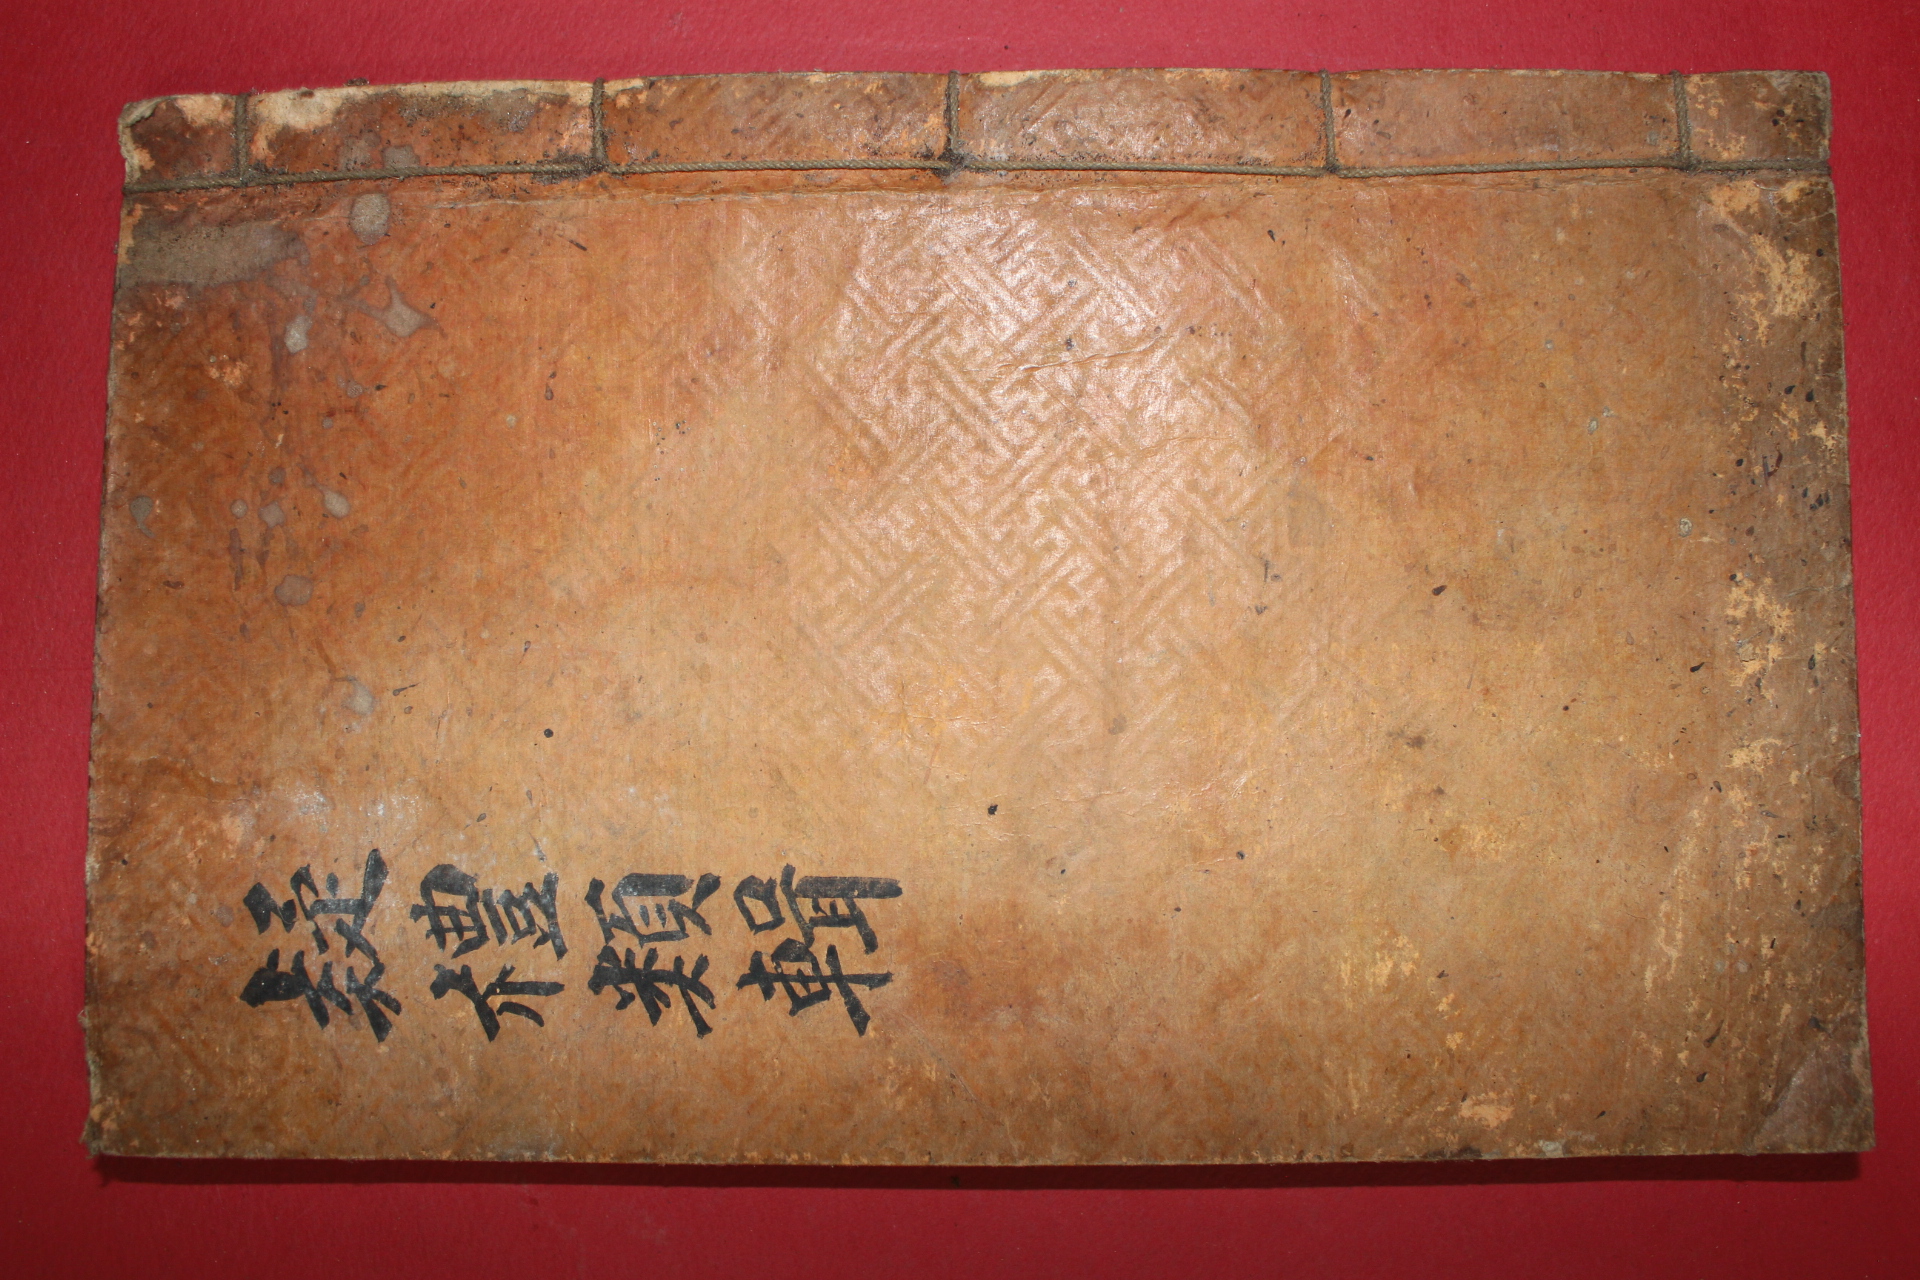 疑禮類輯